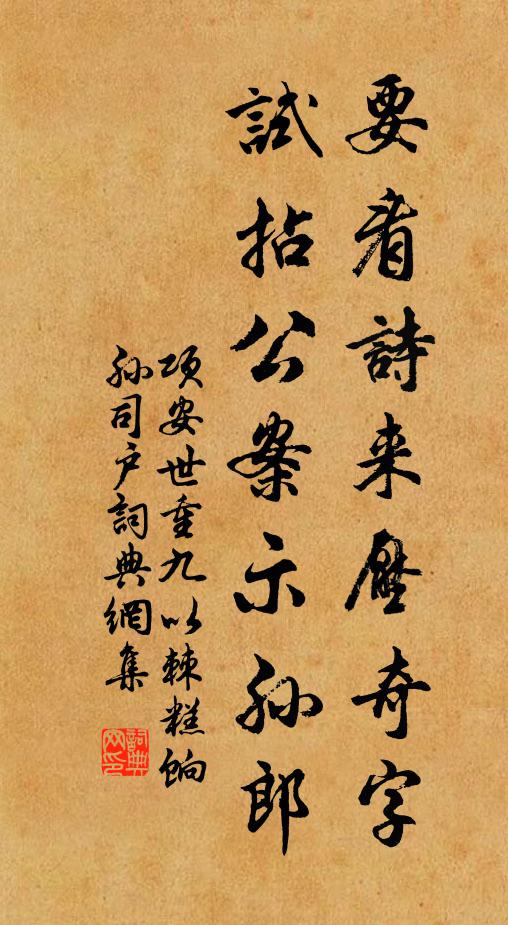 要看詩来壓奇字
試拈公案示孙郎
项安世重九以棘糕餉
孙司户詞典網集
詞典网印